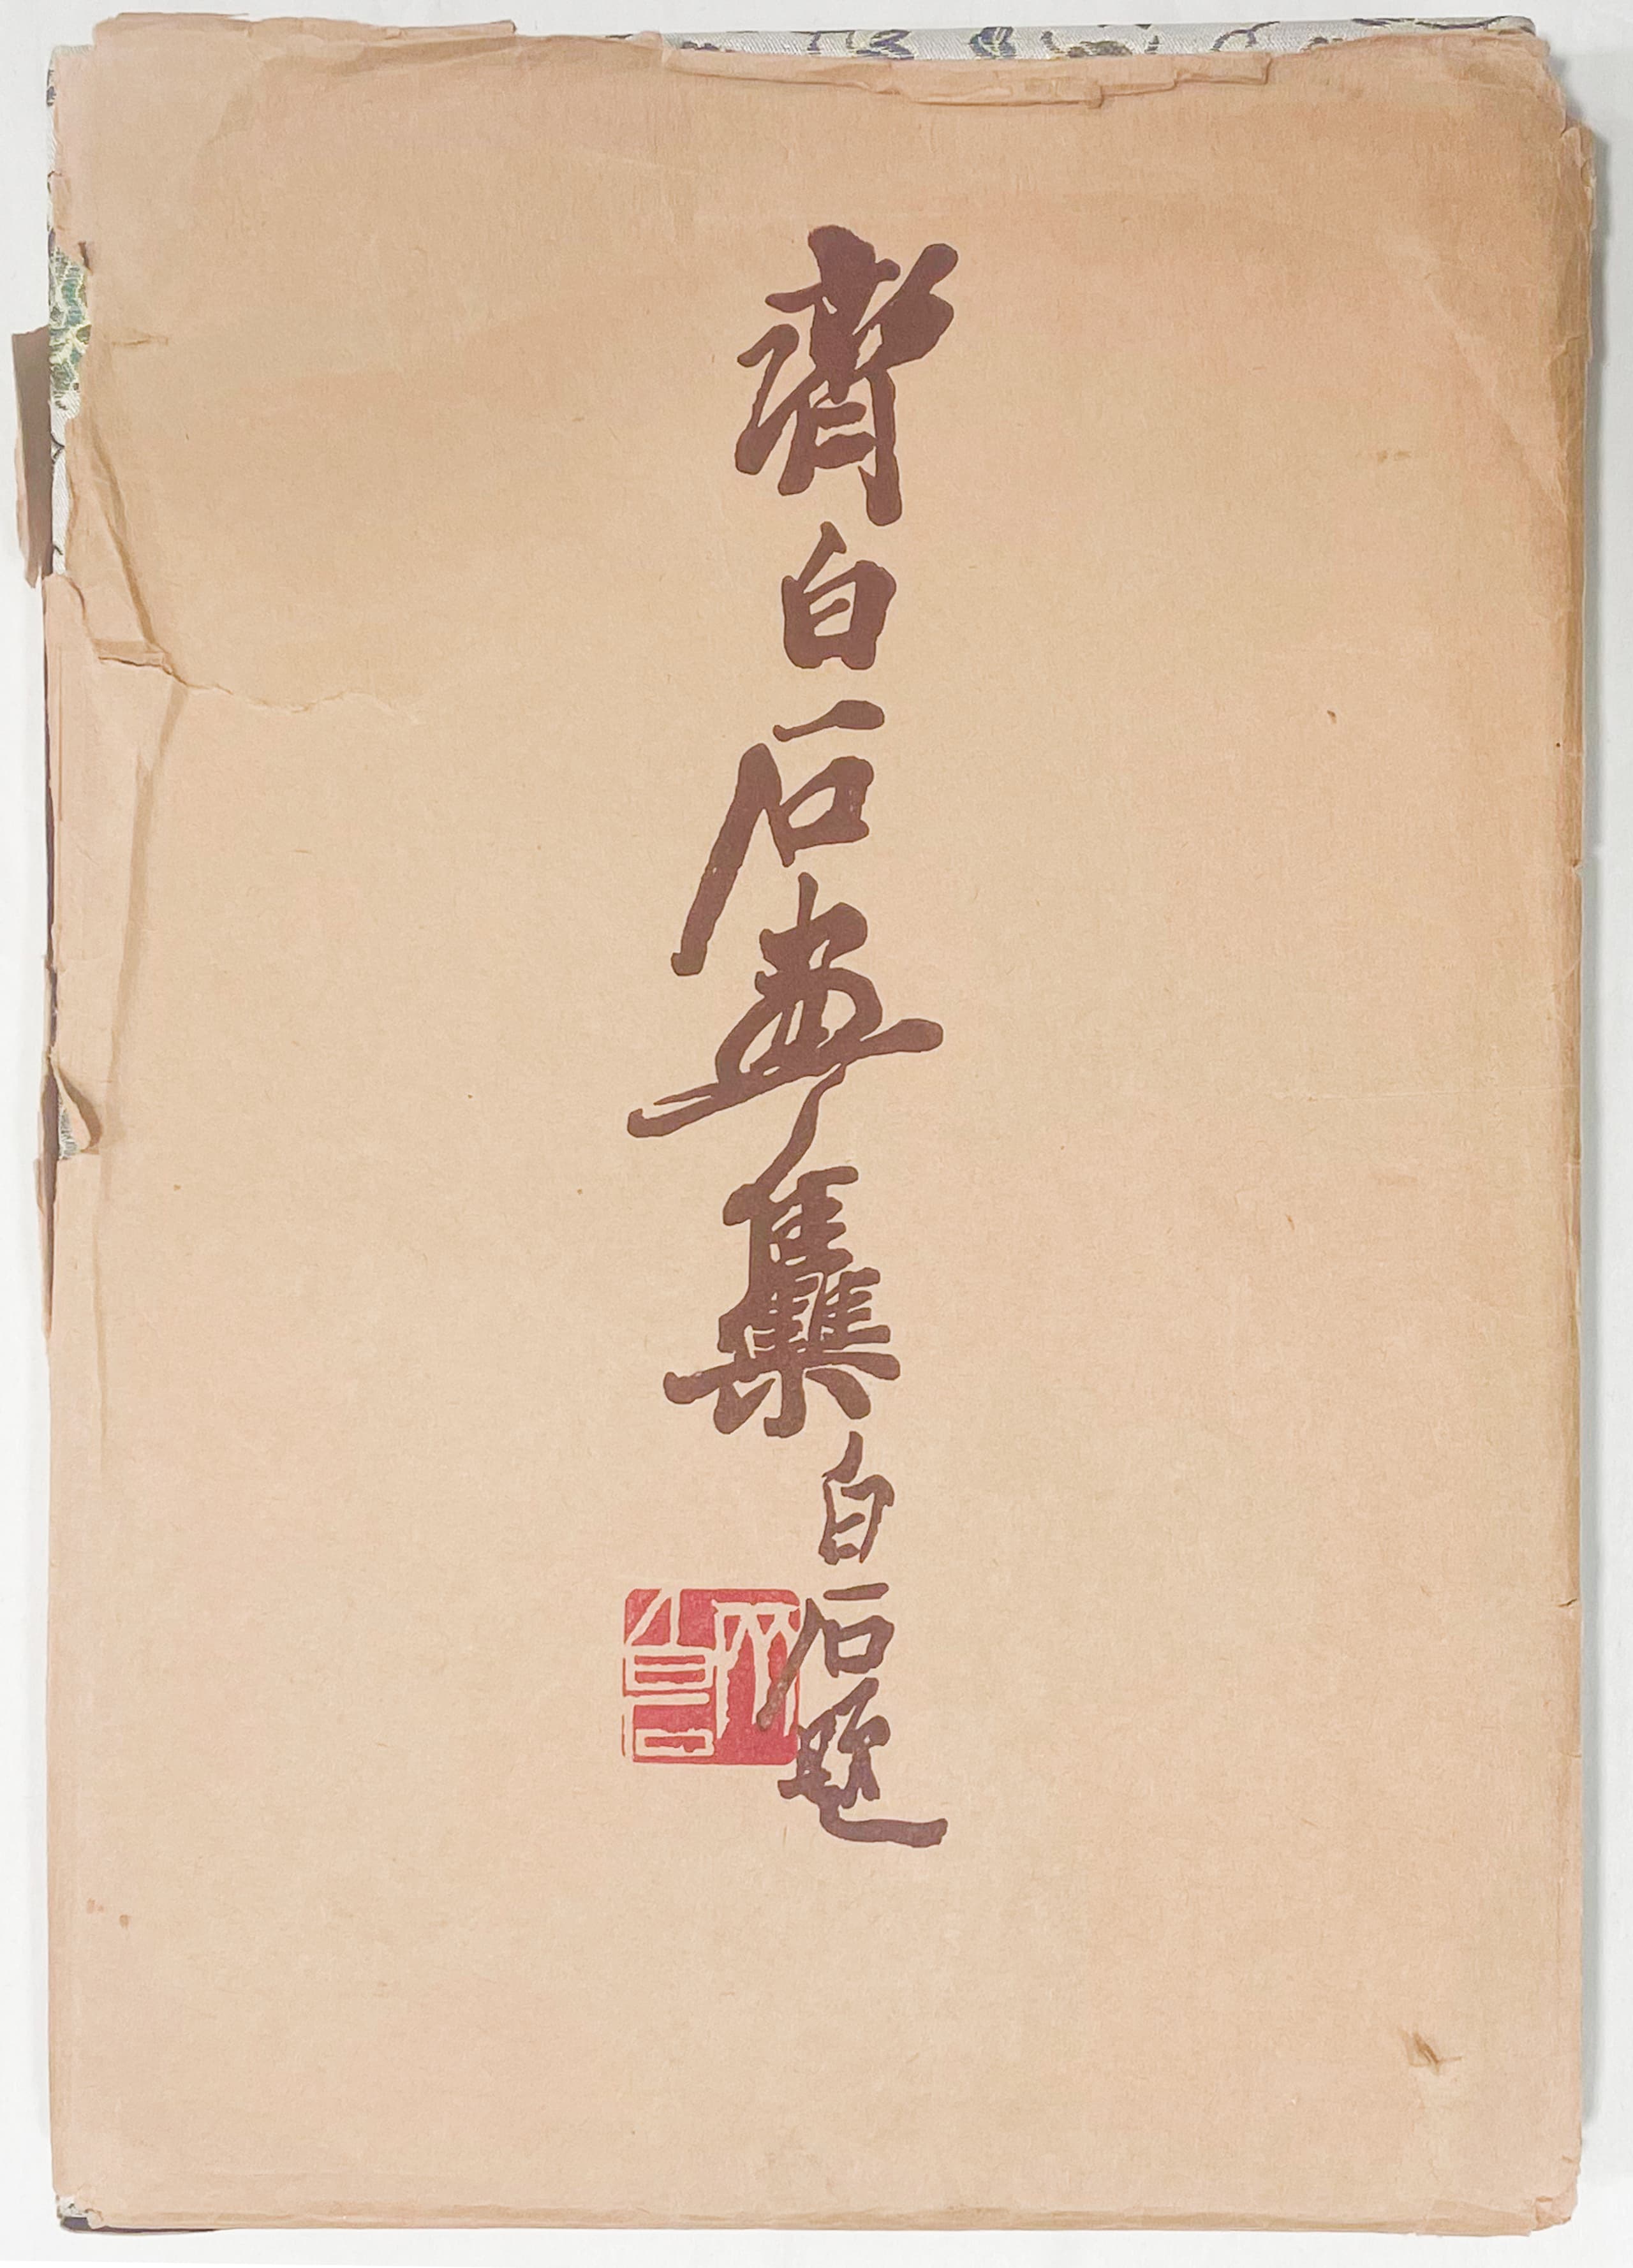 齊白石畫集白石題
齊白石